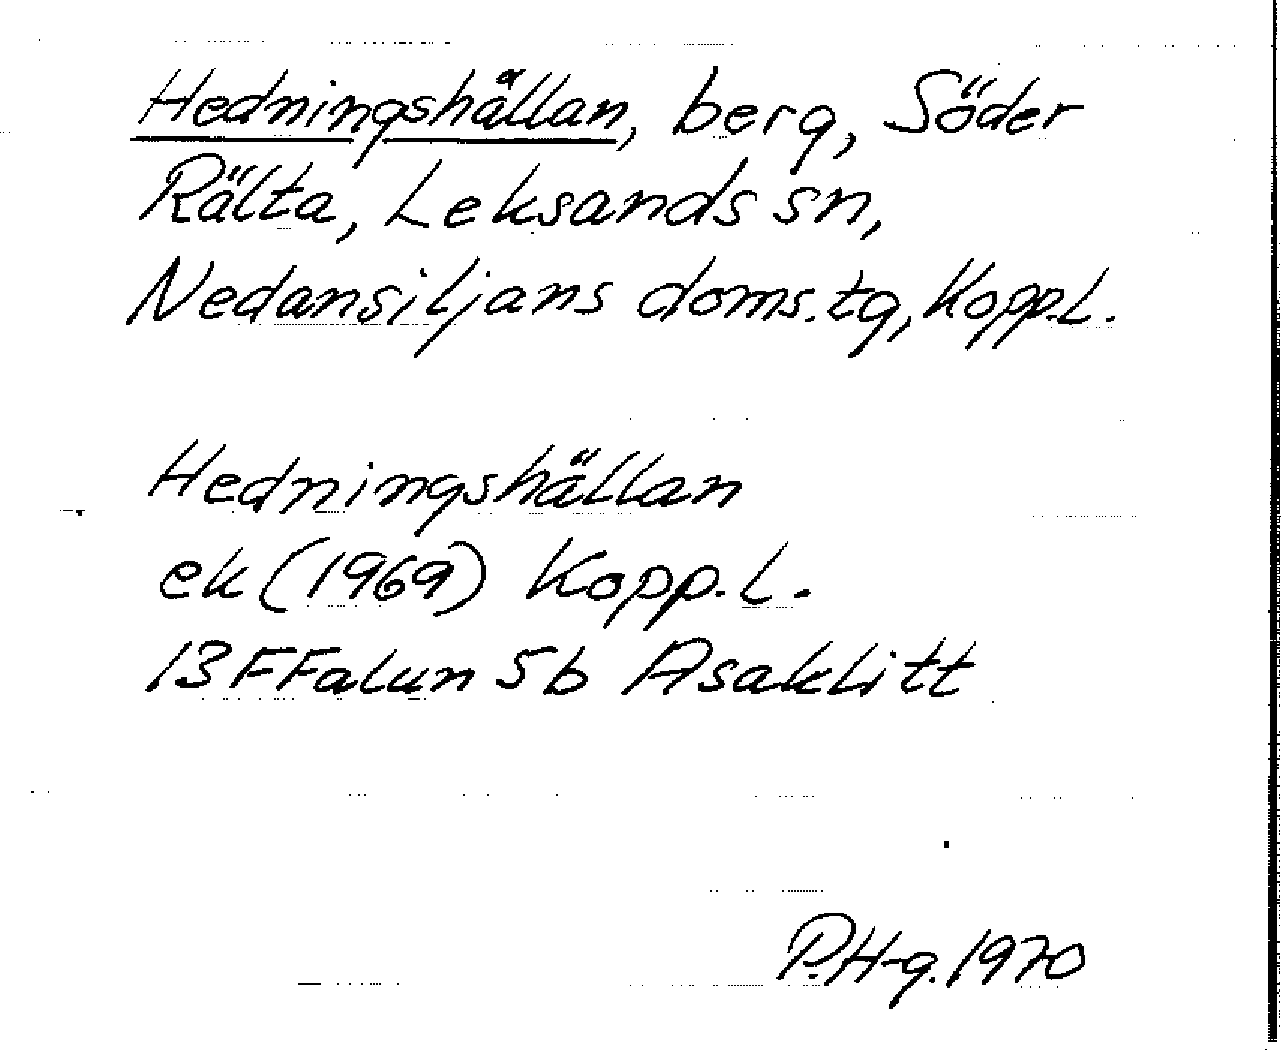 Hedningshållan, berg, Söder
Rälta, Leksands sn,
Nedansiljans doms.tg, Kopp.l.
Hedningshällan
ek (1969) Kopp.l.
13FFalun 5b Asaklitt
P.H-g. 1970